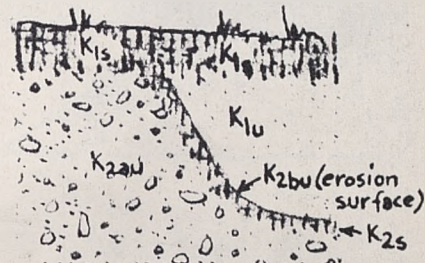 K1s
K1u
K2au
K2bu (erosion
surface)
K2s